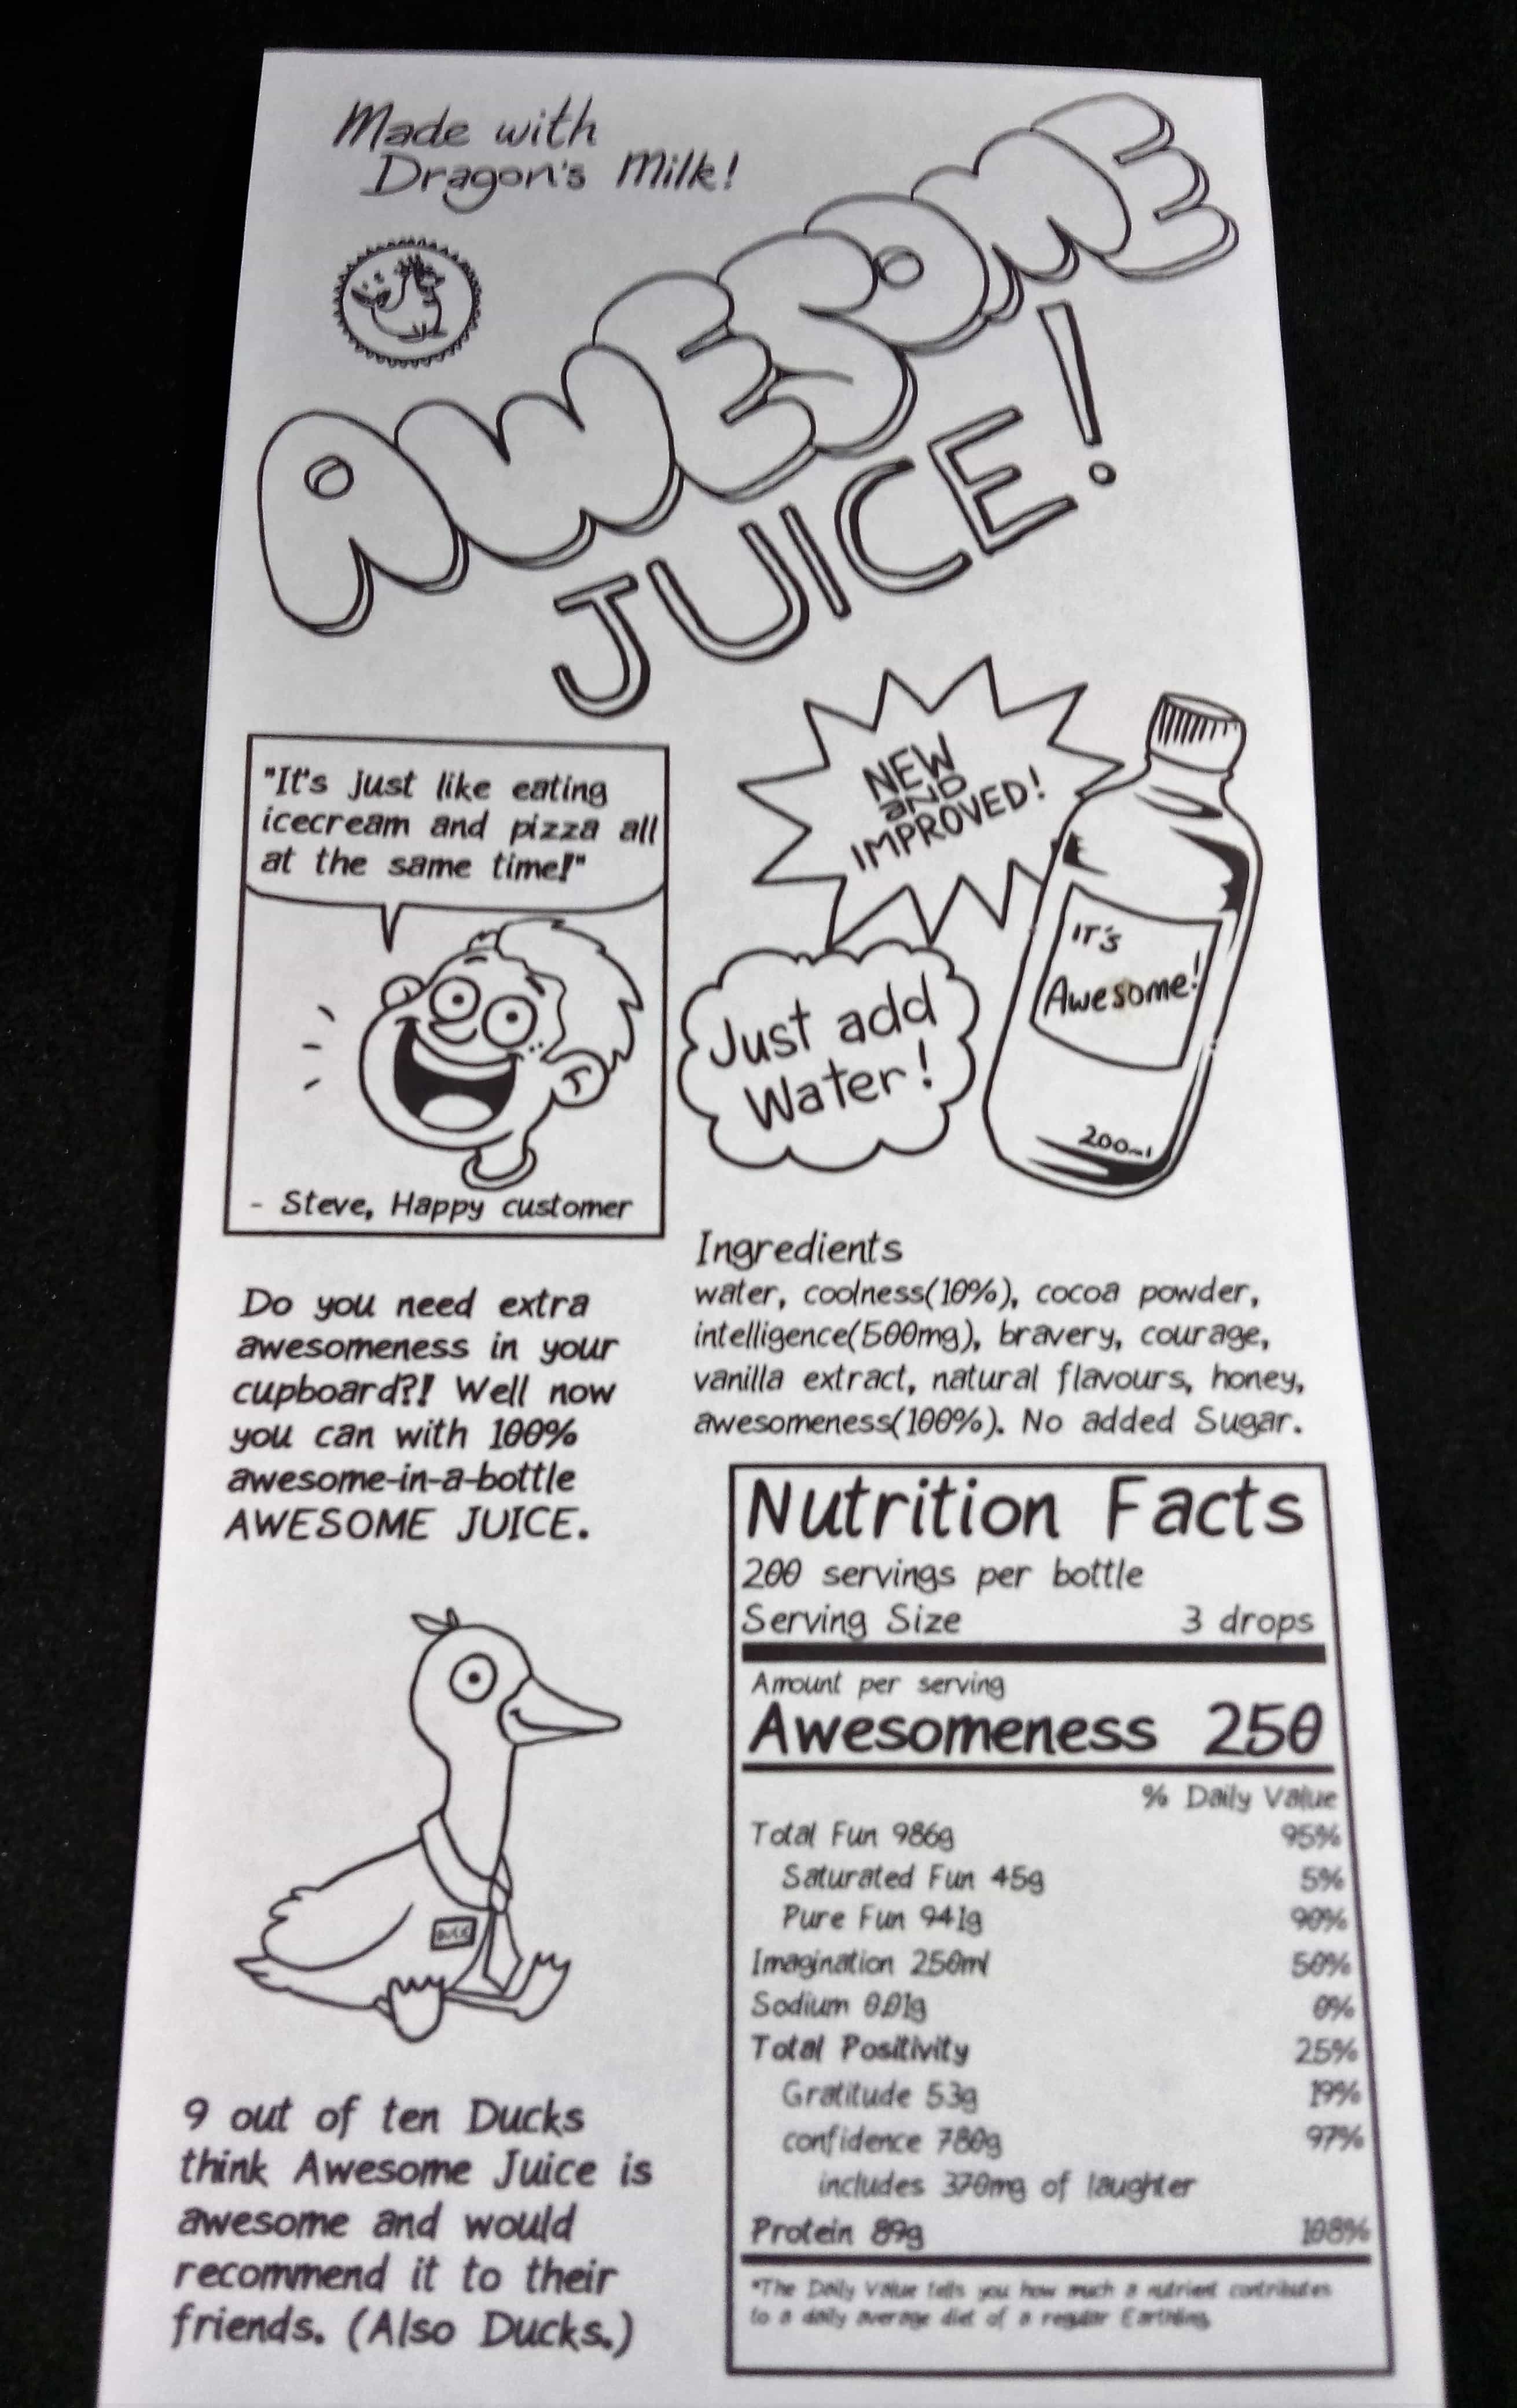 Made with
Dragon's Milk!
AWESOME
JUICE!
"It's just like eating
icecream and pizza all
at the same time!"
- Steve, Happy customer
NEW
AND
IMPROVED!
Just add
Water!
IT'S
Awesome!
200ml
Do you need extra
awesomeness in your
cupboard?! Well now
you can with 100%
awesome-in-a-bottle
AWESOME JUICE.
DUCK
9 out of ten Ducks
think Awesome Juice is
awesome and would
recommend it to their
friends. (Also Ducks.)
Ingredients
water, coolness(10%), cocoa powder,
intelligence(500mg), bravery, courage,
vanilla extract, natural flavours, honey,
awesomeness(100%). No added Sugar.
Nutrition Facts
200 servings per bottle
Serving Size 3 drops
Amount per serving
Awesomeness 250
% Daily Value
Total Fun 986g 95%
Saturated Fun 45g 5%
Pure Fun 941g 90%
Imagination 250ml 50%
Sodium 0.01g 0%
Total Positivity 25%
Gratitude 53g 19%
confidence 780g 97%
includes 370mg of laughter
Protein 89g 108%
*The Daily Value tells you how much a nutrient contributes
to a daily average diet of a regular Earthling.